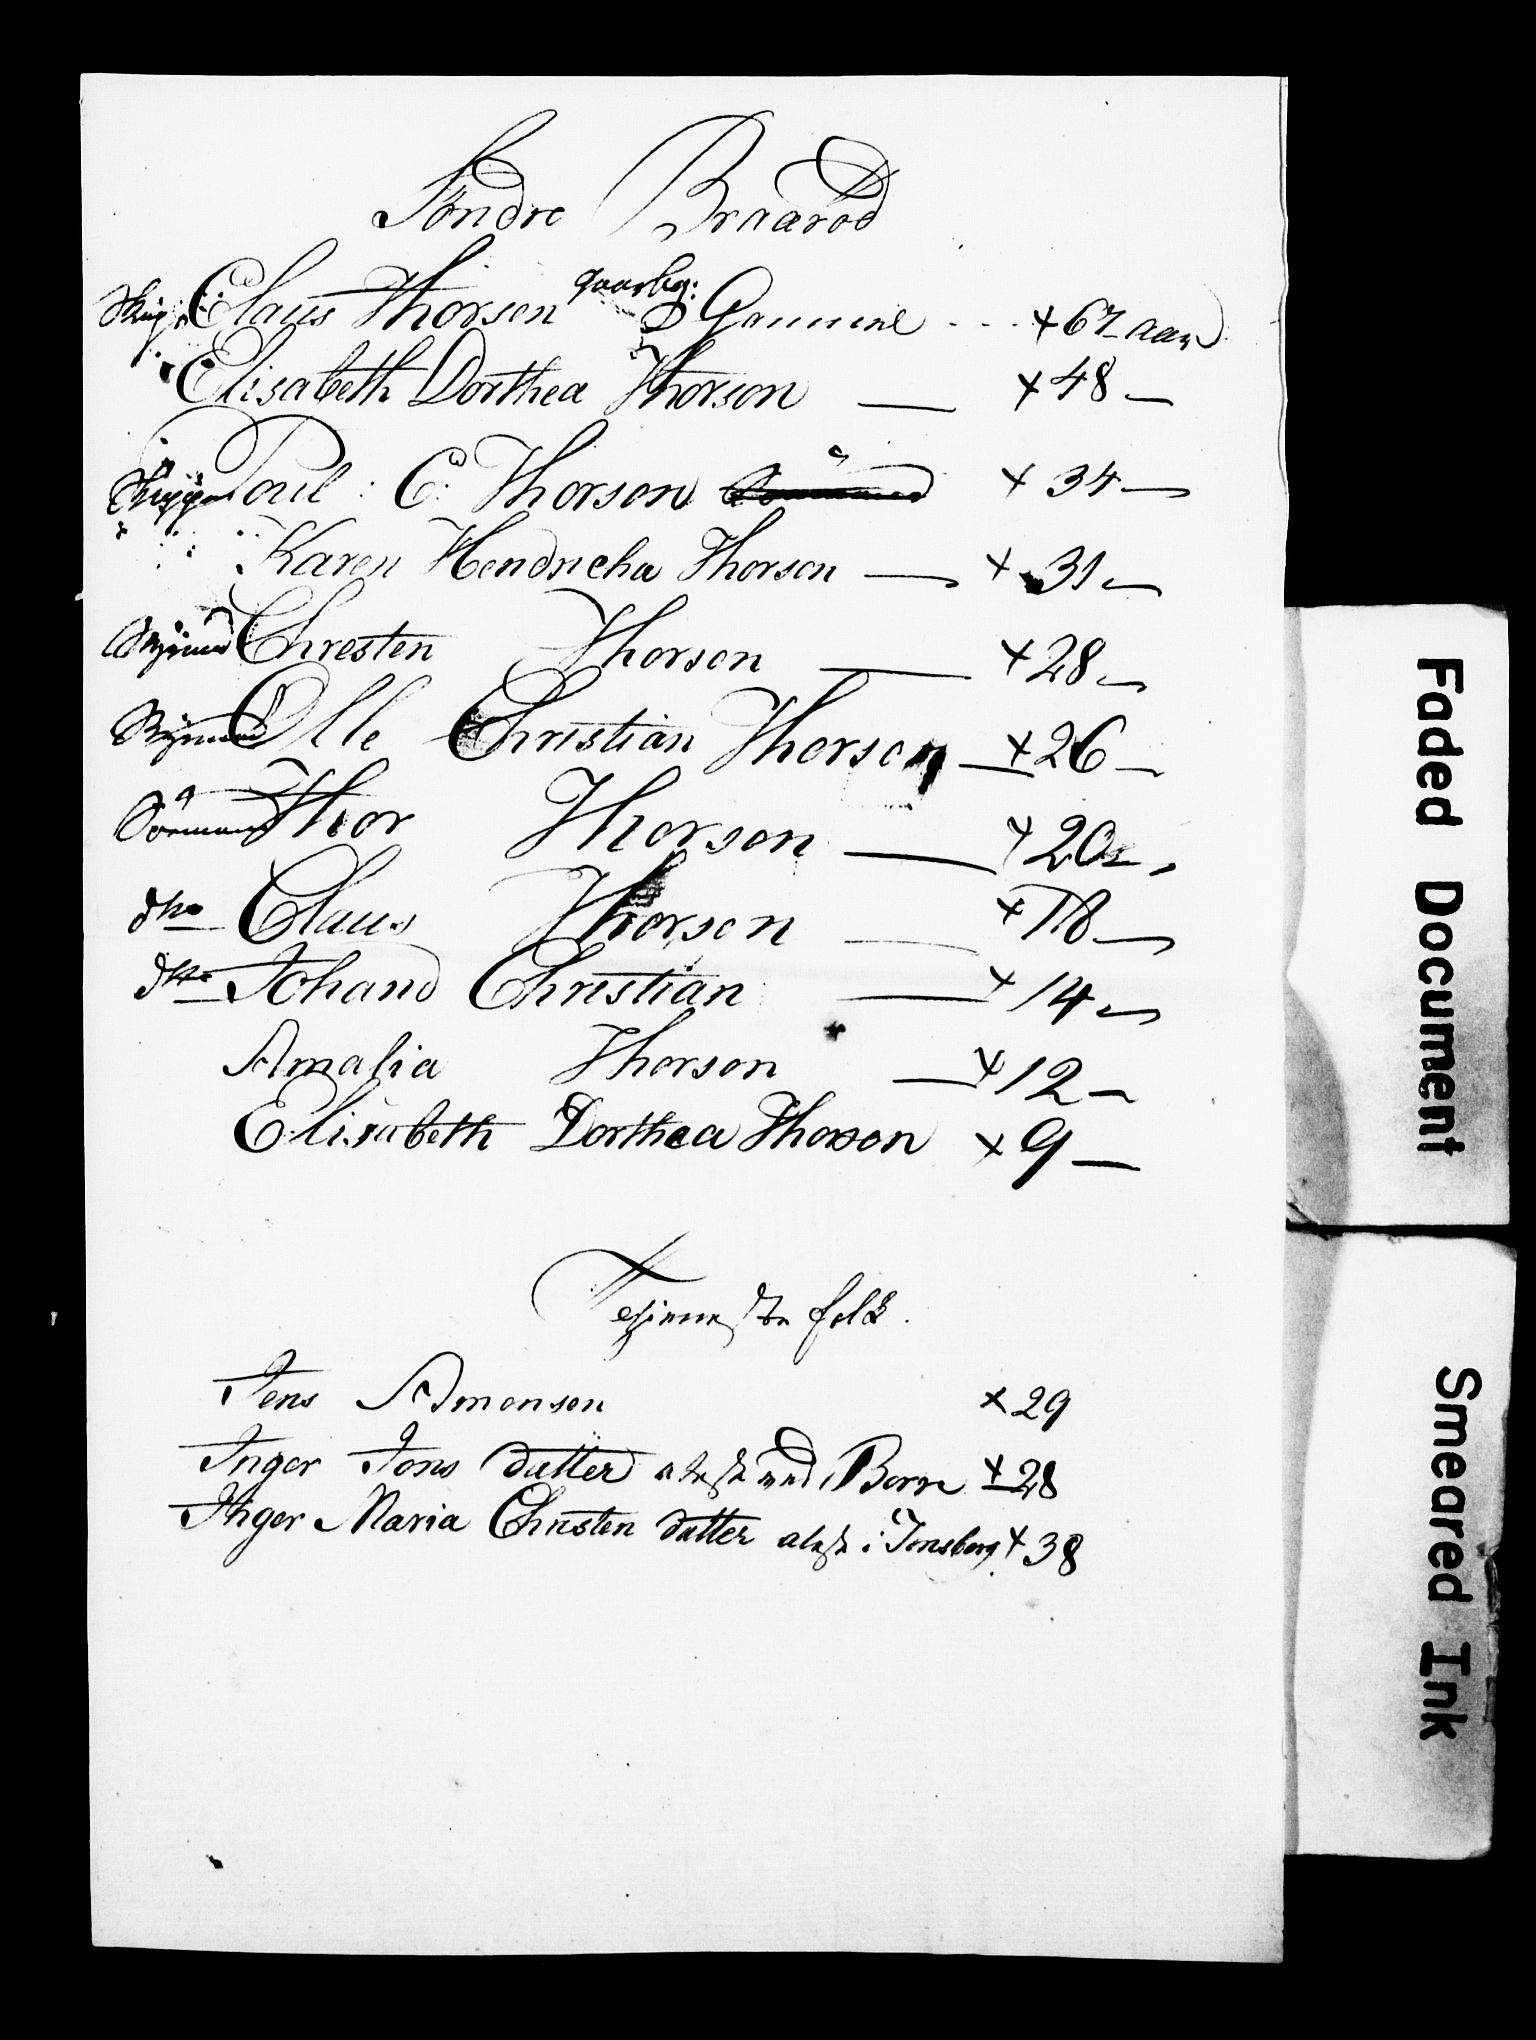 Söndre Braaröd
Skip: Claus Thorsen gaarbg: Gammel - - - + 67 aar
Elisabeth Dorthea Thorson — + 48 —
Skipper Poul : C: Thorson + 34 —
Karen Hendricha Thorson — + 31 —
Styrmand Chresten Thorson — + 28 —
Styrmand Olle Christian Thorson — + 26 —
Sömand Thor Thorson — + 20 —
dto Claus Thorson — + 18 —
dto Johand Christian — + 14 —
Amalia Thorson — + 12 —
Elisabeth Dorthea Thorson + 9 —
Tejenneste folk.
Jens Amonsen + 29
Inger Jons datter Borre + 28
Inger Maria Christen datter i Tonsberg + 38
Faded Document
Smeared Ink